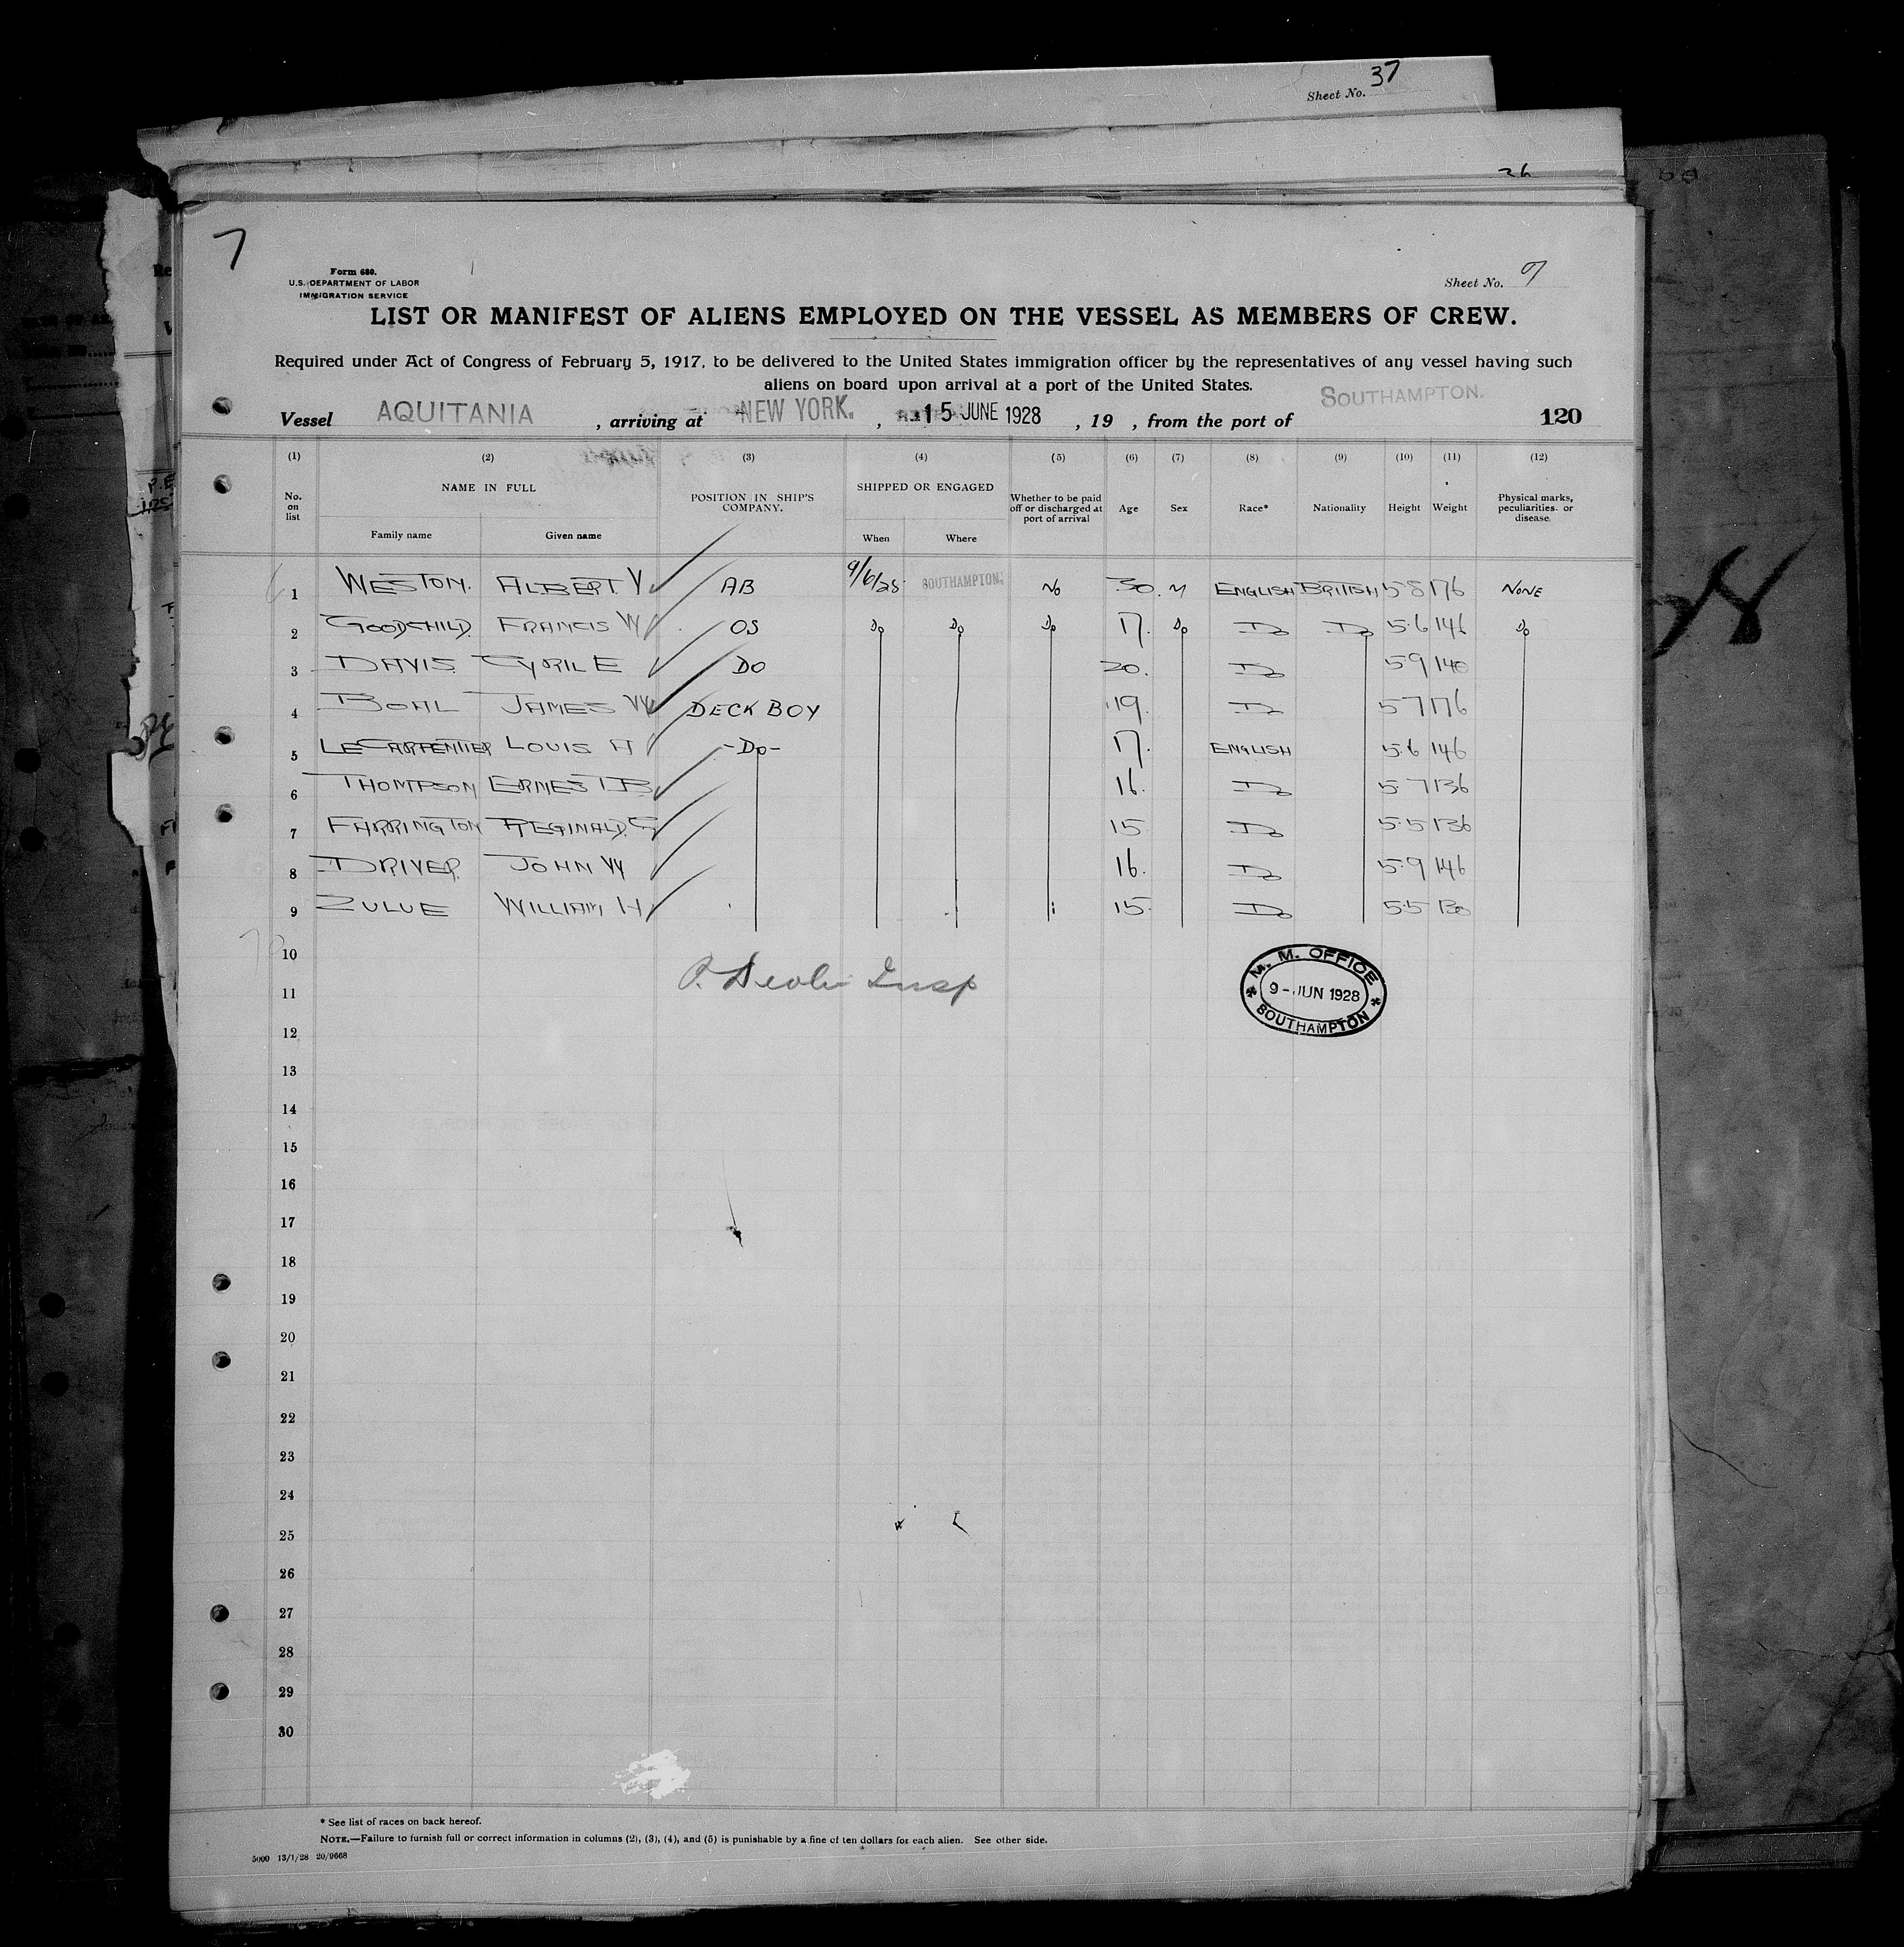 Sheet No. 37
26
7
Form 680.
U.S. DEPARTMENT OF LABOR
IMMIGRATION SERVICE
Sheet No. 7
LIST OR MANIFEST OF ALIENS EMPLOYED ON THE VESSEL AS MEMBERS OF CREW.
Required under Act of Congress of February 5, 1917, to be delivered to the United States immigration officer by the representatives of any vessel having such
aliens on board upon arrival at a port of the United States.
Vessel AQUITANIA , arriving at NEW YORK. , 15 JUNE 1928 , 19 , from the port of SOUTHAMPTON. 120
(1) (2) (3) (4) (5) (6) (7) (8) (9) (10) (11) (12)
No. on list NAME IN FULL Family name Given name POSITION IN SHIP'S COMPANY. SHIPPED OR ENGAGED When Where Whether to be paid off or discharged at port of arrival Age Sex Race* Nationality Height Weight Physical marks, peculiarities or disease.
1 WESTON. ALBERT V AB 9/6/28 SOUTHAMPTON. No 30. M ENGLISH BRITISH 5 8 176 NONE
2 GOODCHILD. FRANCIS W OS Do Do Do 17. Do Do Do 5.6 146 Do
3 DAVIS CYRIL E DO 20. Do 5 9 140
4 BOHL JAMES W DECK BOY 19. Do 5 7 176
5 LECARPENTIER LOUIS A -Do- 17. ENGLISH 5.6 146
6 THOMPSON ERNEST B 16. Do 5.7 136
7 FARRINGTON REGINALD. G 15 Do 5.5 136
8 DRIVER. JOHN W 16. Do 5.9 146
9 ZULUE WILLIAM H 15. Do 5.5 130
10
Insp
11
M. M. OFFICE
9 - JUN 1928
SOUTHAMPTON
12
13
14
15
16
17
18
19
20
21
22
23
24
25
26
27
28
29
30
* See list of races on back hereof.
NOTE.—Failure to furnish full or correct information in columns (2), (3), (4), and (5) is punishable by a fine of ten dollars for each alien. See other side.
5000 13/1/28 20/9668